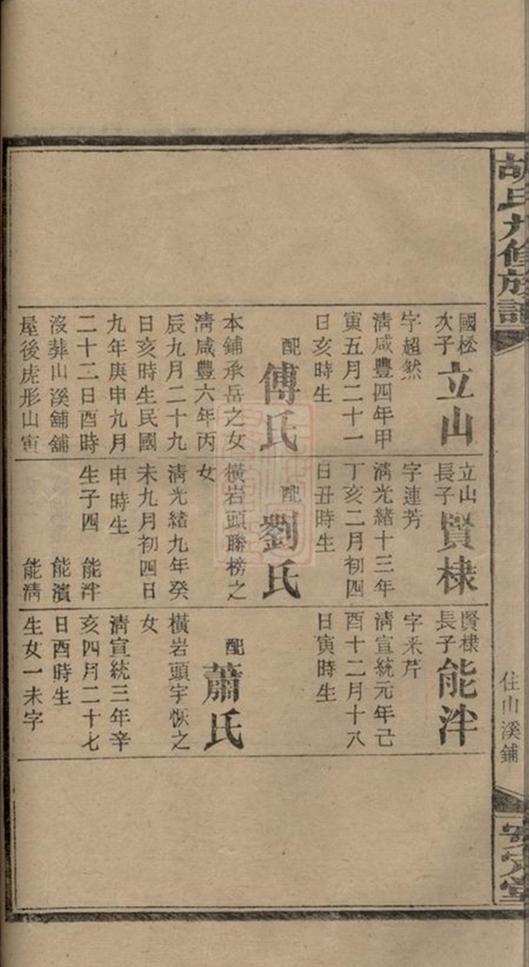 胡氏九修族譜
住山溪鋪
安定堂
國松
次子
立山
字超然
清咸豐四年甲
寅五月二十一
日亥時生
配
傅氏
本鋪承岳之女
清咸豐六年丙
辰九月二十九
日亥時生民國
九年庚申九月
二十二日酉時
沒葬山溪鋪鋪
屋後虎形山寅
立山
長子
賢棣
字連芳
清光緒十三年
丁亥二月初四
日丑時生
配
劉氏
橫岩頭勝榜之
女
清光緒九年癸
未九月初四日
申時生
生子四 能泮
能濱
能清
賢棣
長子
能泮
字采芹
清宣統元年己
酉十二月十八
日寅時生
配
蕭氏
橫岩頭宇恢之
女
清宣統三年辛
亥四月二十七
日酉時生
生女一未字